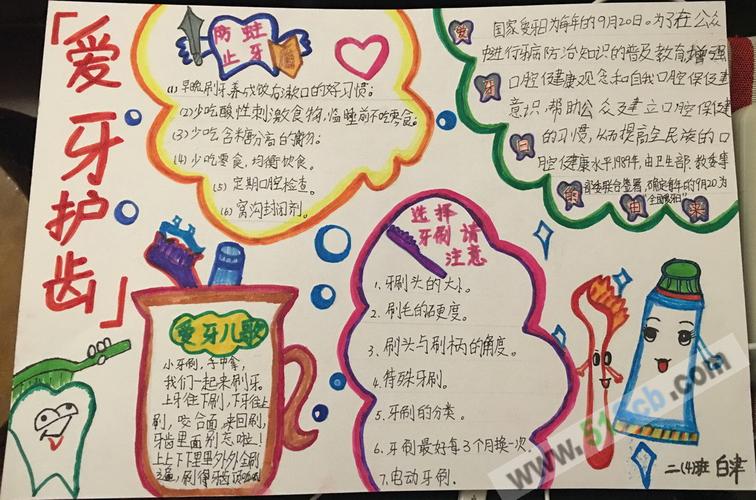 「爱牙护齿」
防蛀
止牙
(1) 早晚刷牙养成饭后漱口的好习惯;
(2)少吃酸性刺激食物,临睡前不吃零食。
(3)少吃含糖分高的食物。
(4)少吃零食,均衡饮食。
(5) 定期口腔检查。
(6) 窝沟封闭剂。
爱牙日的由来
国家爱牙日为每年的9月20日。为了在公众
中进行牙病防治知识的普及教育,增强
口腔健康观念和自我口腔保健
意识,帮助公众建立口腔保健
的习惯,从而提高全民族的口
腔健康水平,1989年,由卫生部、教委等
部委联合签署,确定每年的9月20为
"全国爱牙日"
爱牙儿歌
小牙刷,手中拿,
我们一起来刷牙。
上牙往下刷,下牙往上
刷,咬合面来回刷,
牙齿里面别忘啦!
上上下下里里外外全刷
遍,刷得牙齿
选择
牙刷请
注意
1、牙刷头的大小。
2、刷毛的硬度。
3、刷头与刷柄的角度。
4、特殊牙刷。
5、牙刷的分类。
6、牙刷最好每3个月换一次。
7、电动牙刷.
二(4)班 白聿